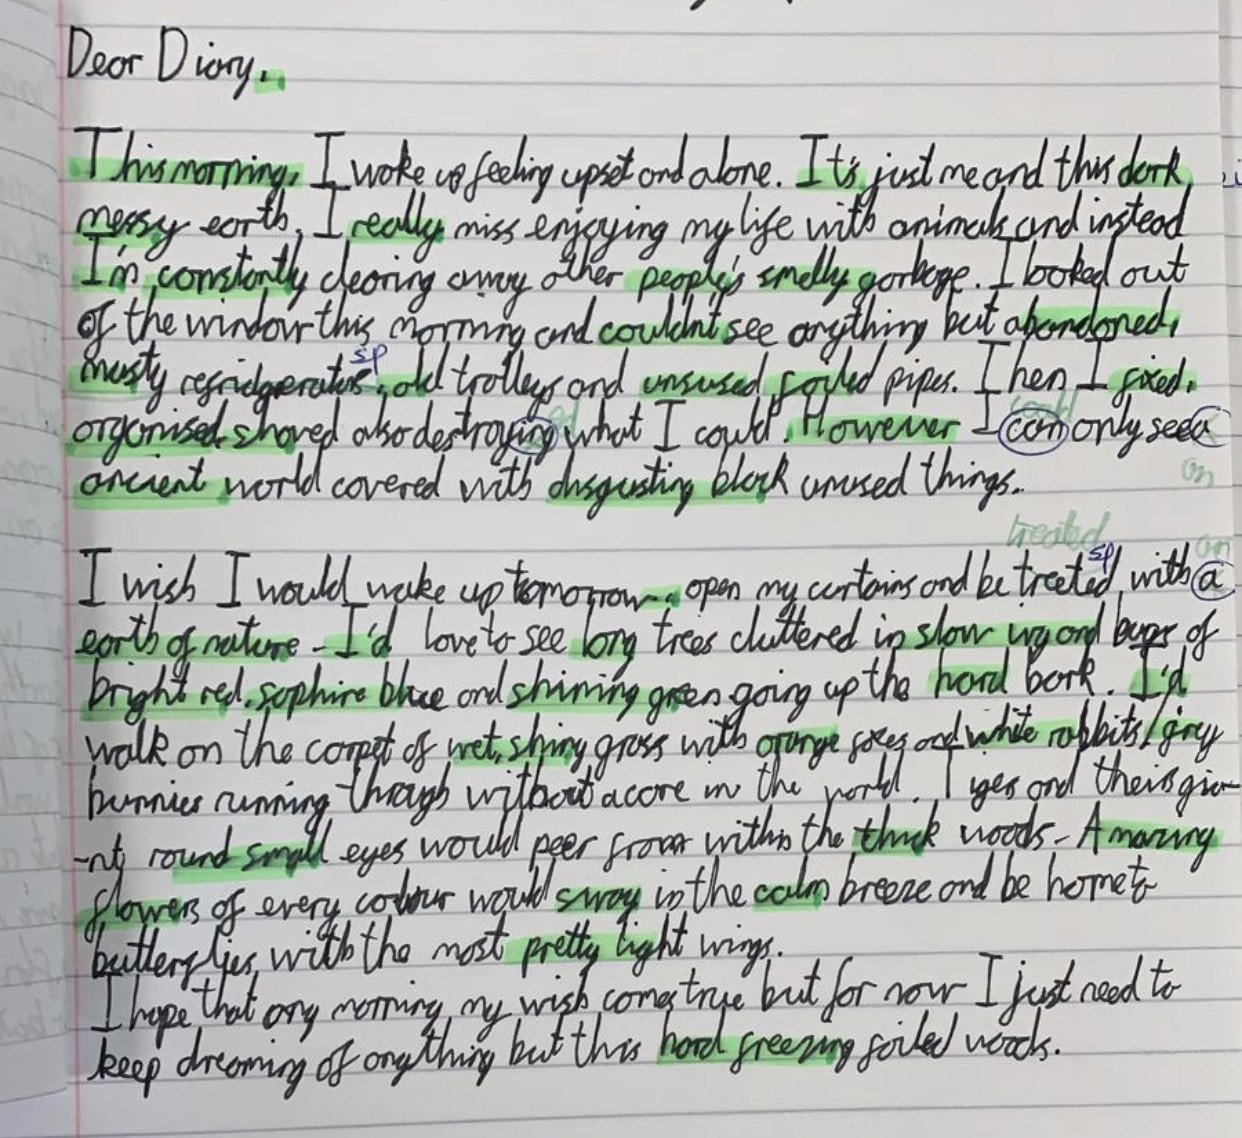 Dear Diary,
This morning, I woke up feeling upset and alone. It's just me and this dark,
messy earth. I really miss enjoying my life with animals and instead
I'm constantly clearing away other people's smelly garbage. I looked out
of the window this morning and couldn't see anything but abandoned,
sp
musty refridgerators, old trolleys and unsused foiled pipes. Then I fixed,
ed could
organised, shoved also destroying what I could. However I can only see a
an
ancient world covered with disgusting black unused things.
treated sp an
I wish I would wake up tomorrow, open my curtains and be treeted with a
earth of nature. I'd love to see long trees cluttered in slow ivy and bugs of
bright red, saphire blue and shining green going up the hard bark. I'd
walk on the carpet of wet, shiny grass with orange foxes and white rabbits/grey
bunnies running through without a care in the world. and their gia-
-nt, round small eyes would peer from within the thick woods. Amazing
flowers of every colour would sway in the calm breeze and be home to
butterflies, with the most pretty light wings.
I hope that any morning my wish comes true but for now I just need to
keep dreaming of anything but this hard freezing foiled woods.